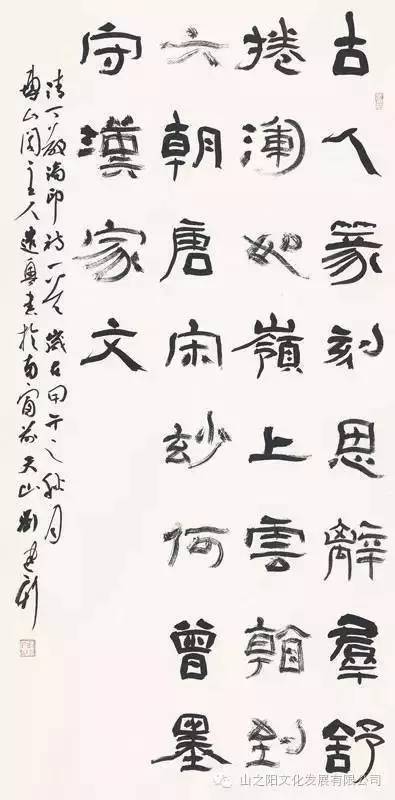 古人篆刻思離羣舒
捲渾如嶺上雲看到
六朝唐宋玅何曾墨
守漢家文
清丁敬論印詩一首歲在甲午之秋月
山閣主人遣興書於南窗前天山劉建新
山之阳文化发展有限公司